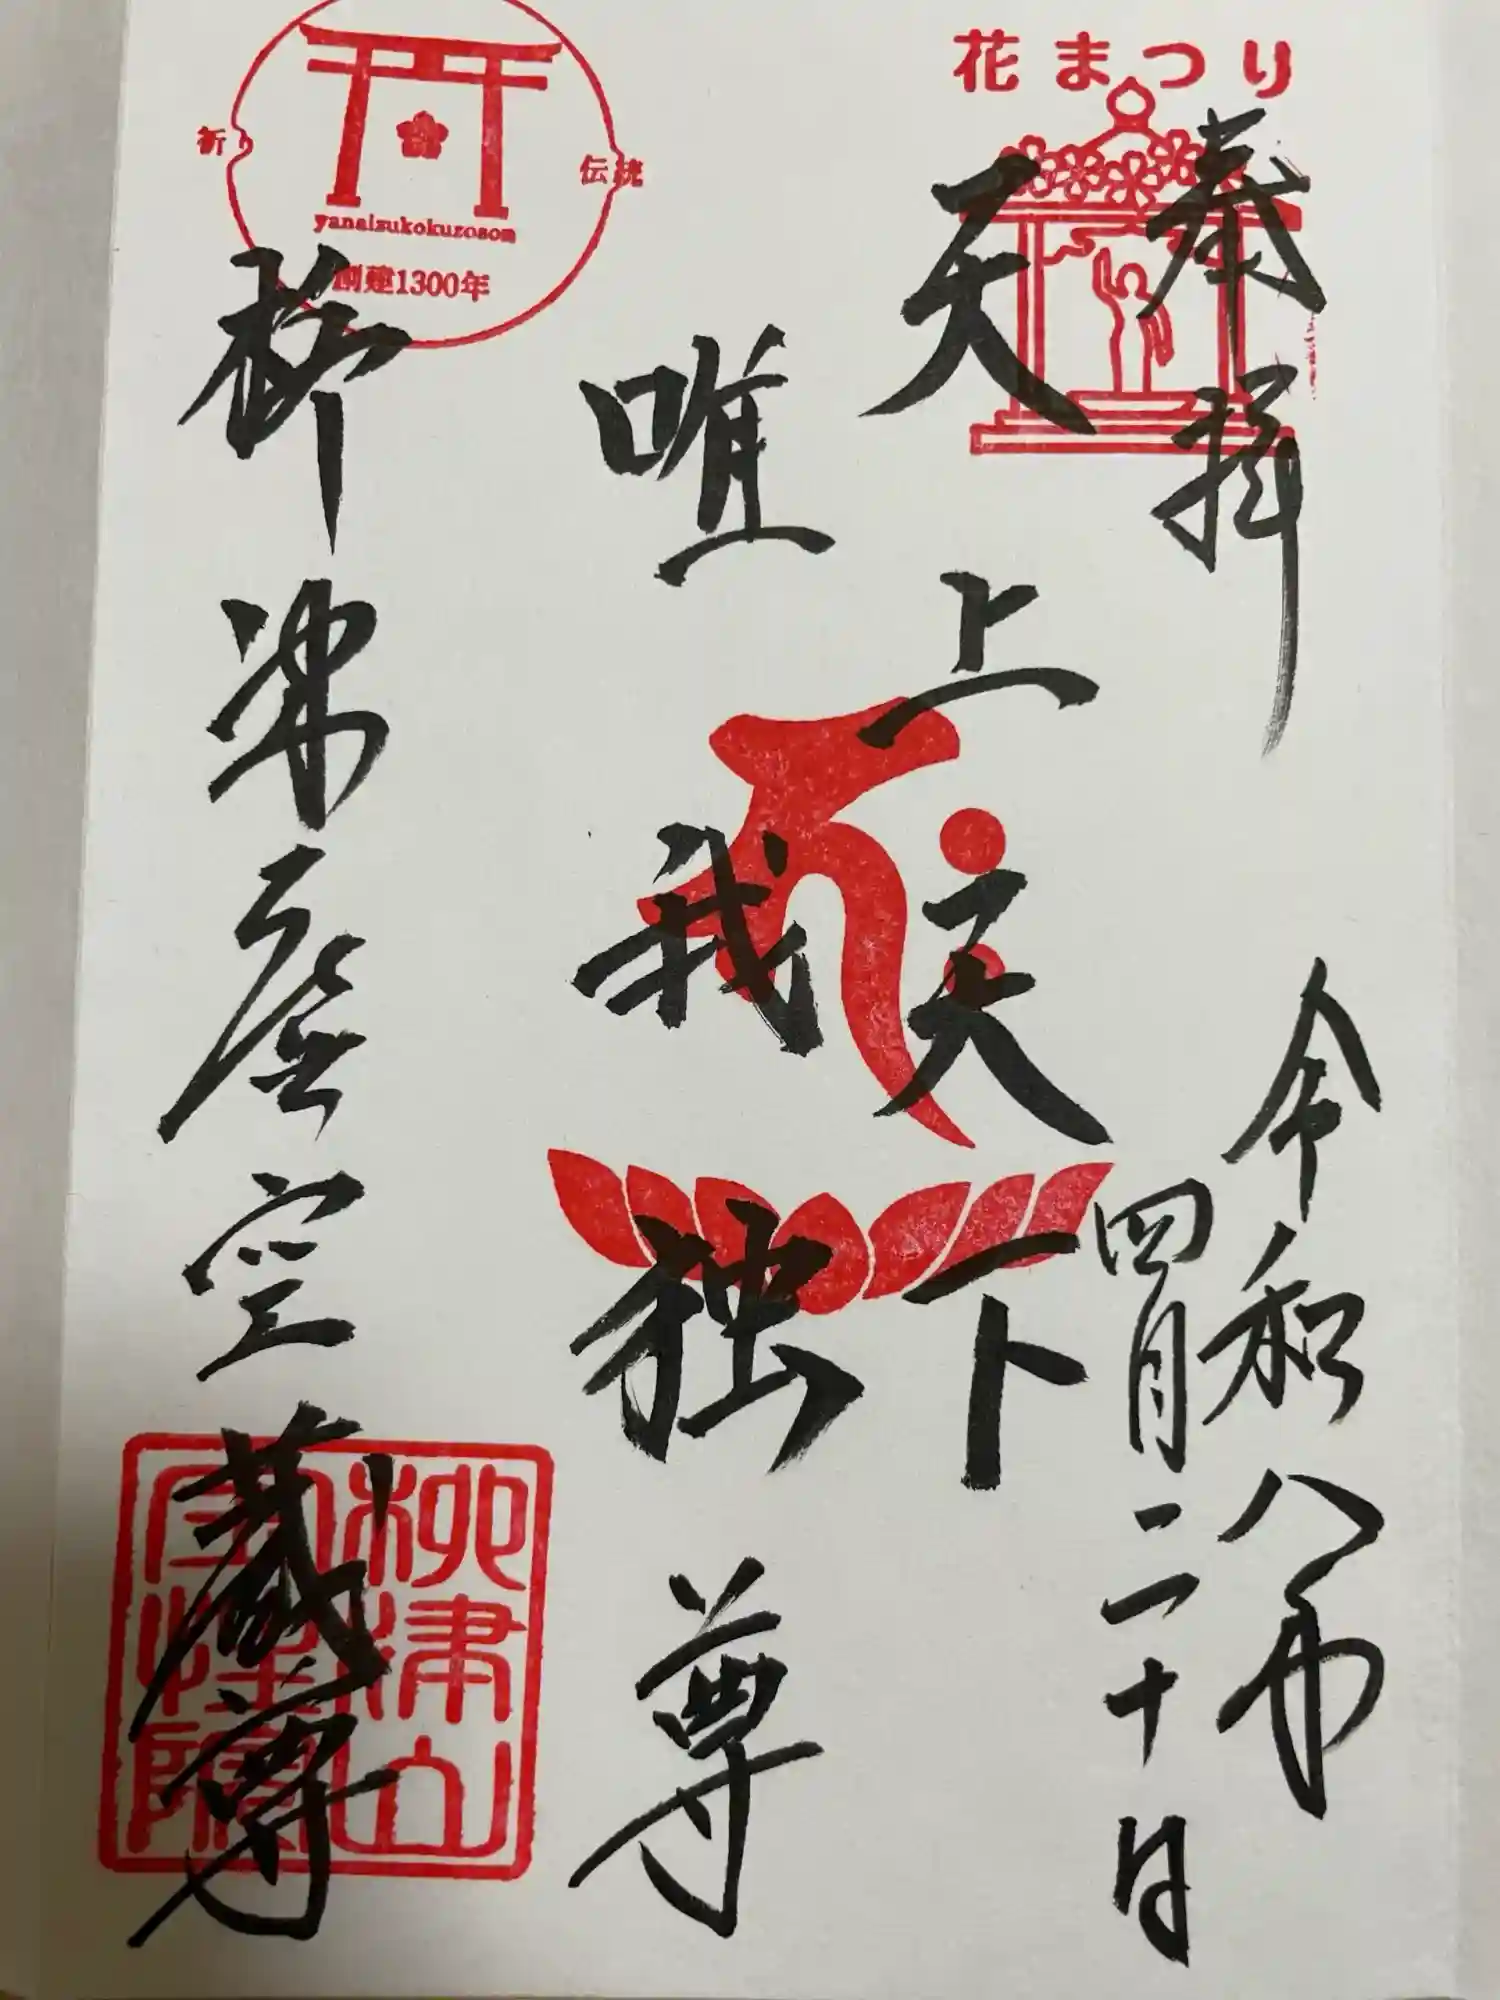 花まつり
奉拝
令和八年
四月二十日
天上天下
唯我独尊
祈り
伝統
yanaizukokuzoson
創建1300年
柳津虚空蔵尊
柳津山
宝性院